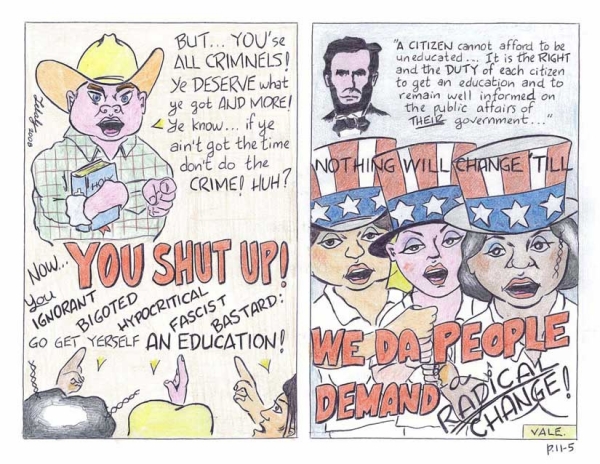 BUT... YOU'se
ALL CRIMNELS!
Ye DESERVE what
ye got AND MORE!
Ye know... if ye
ain't got the time
don't do the
CRIME! HUH?
2008
HOLY
NOW... YOU SHUT UP!
You
IGNORANT
BIGOTED
HYPOCRITICAL
FASCIST
BASTARD:
GO GET YERSELF AN EDUCATION!
"A CITIZEN cannot afford to be
uneducated... It is the RIGHT
and the DUTY of each citizen
to get an education and to
remain well informed on
the public affairs of
THEIR government..."
NOTHING WILL CHANGE 'TILL
WE DA PEOPLE
DEMAND
RADICAL
CHANGE!
VALE.
P.11-5